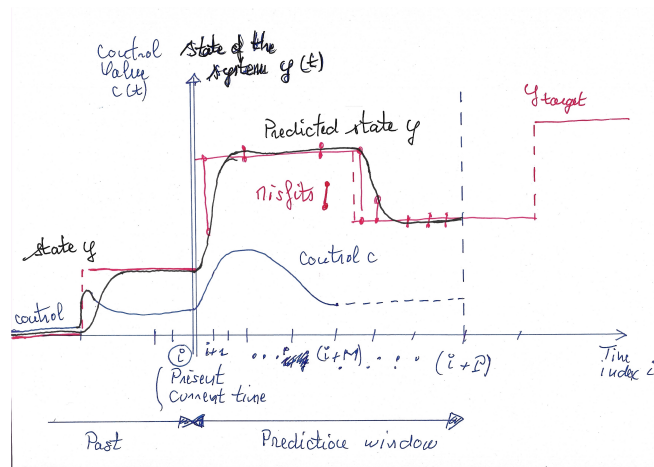 control
Value
c(t)
state of the
system y(t)
y target
Predicted state y
misfits
state y
control c
control
i
i+1
....
(i+M)
. . . .
(i+P)
Time
index i
Present
Current time
Past
Prediction window